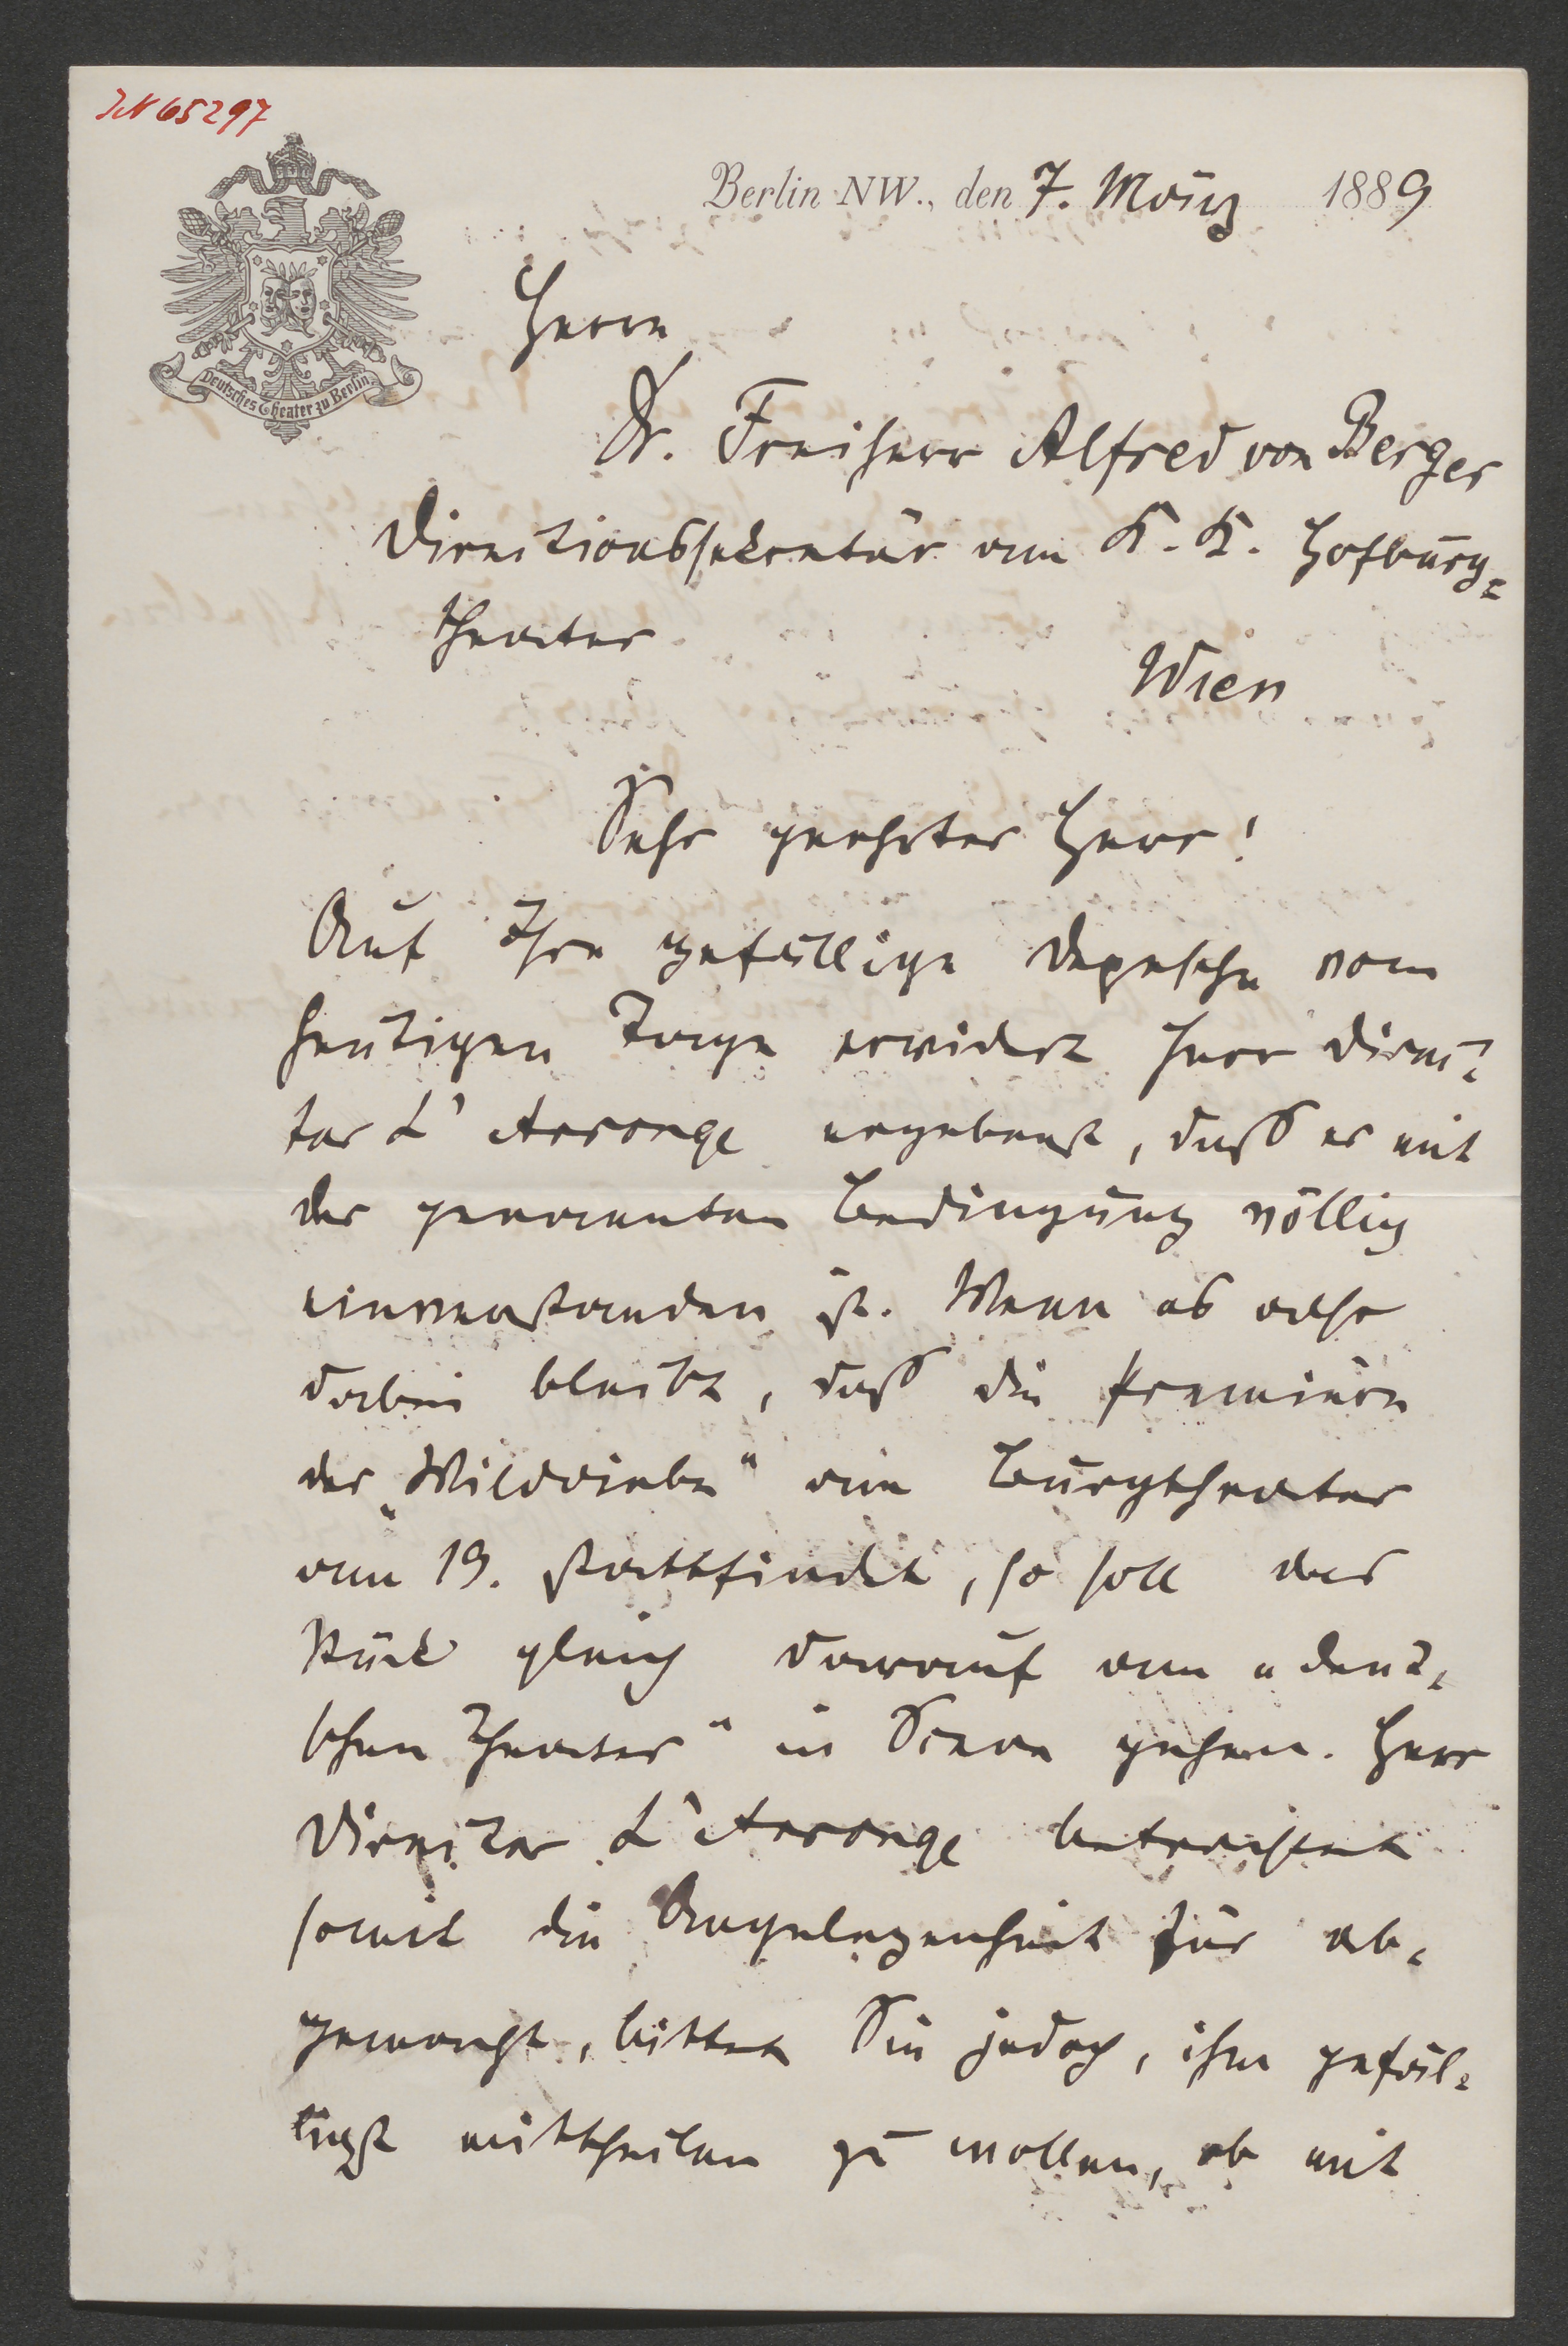 IN 65297
Deutsches Theater zu Berlin
Berlin NW., den 7. März 1889
Herrn
Dr. Freiherr Alfred von Berger
Direktionssekretär am K. K. Hofburg=
theater
Wien
Sehr geehrter Herr!
Auf Ihre gefällige Depesche vom
heutigen Tage erwidert Herr Direk=
tor L'Arronge ergebenst, daß er mit
der genannten Bedingung völlig
einverstanden ist. Wenn es also
dabei bleibt, daß die Premiere
der „Wilddiebe" am Burgtheater
am 19. stattfindet, so soll das
Stück gleich darauf am „Deut=
schen Theater" in Scene gehen. Herr
Direktor L'Arronge betrachtet
somit die Angelegenheit für ab=
gemacht, bittet Sie jedoch, ihm gefäl=
ligst mittheilen zu wollen, ob mit